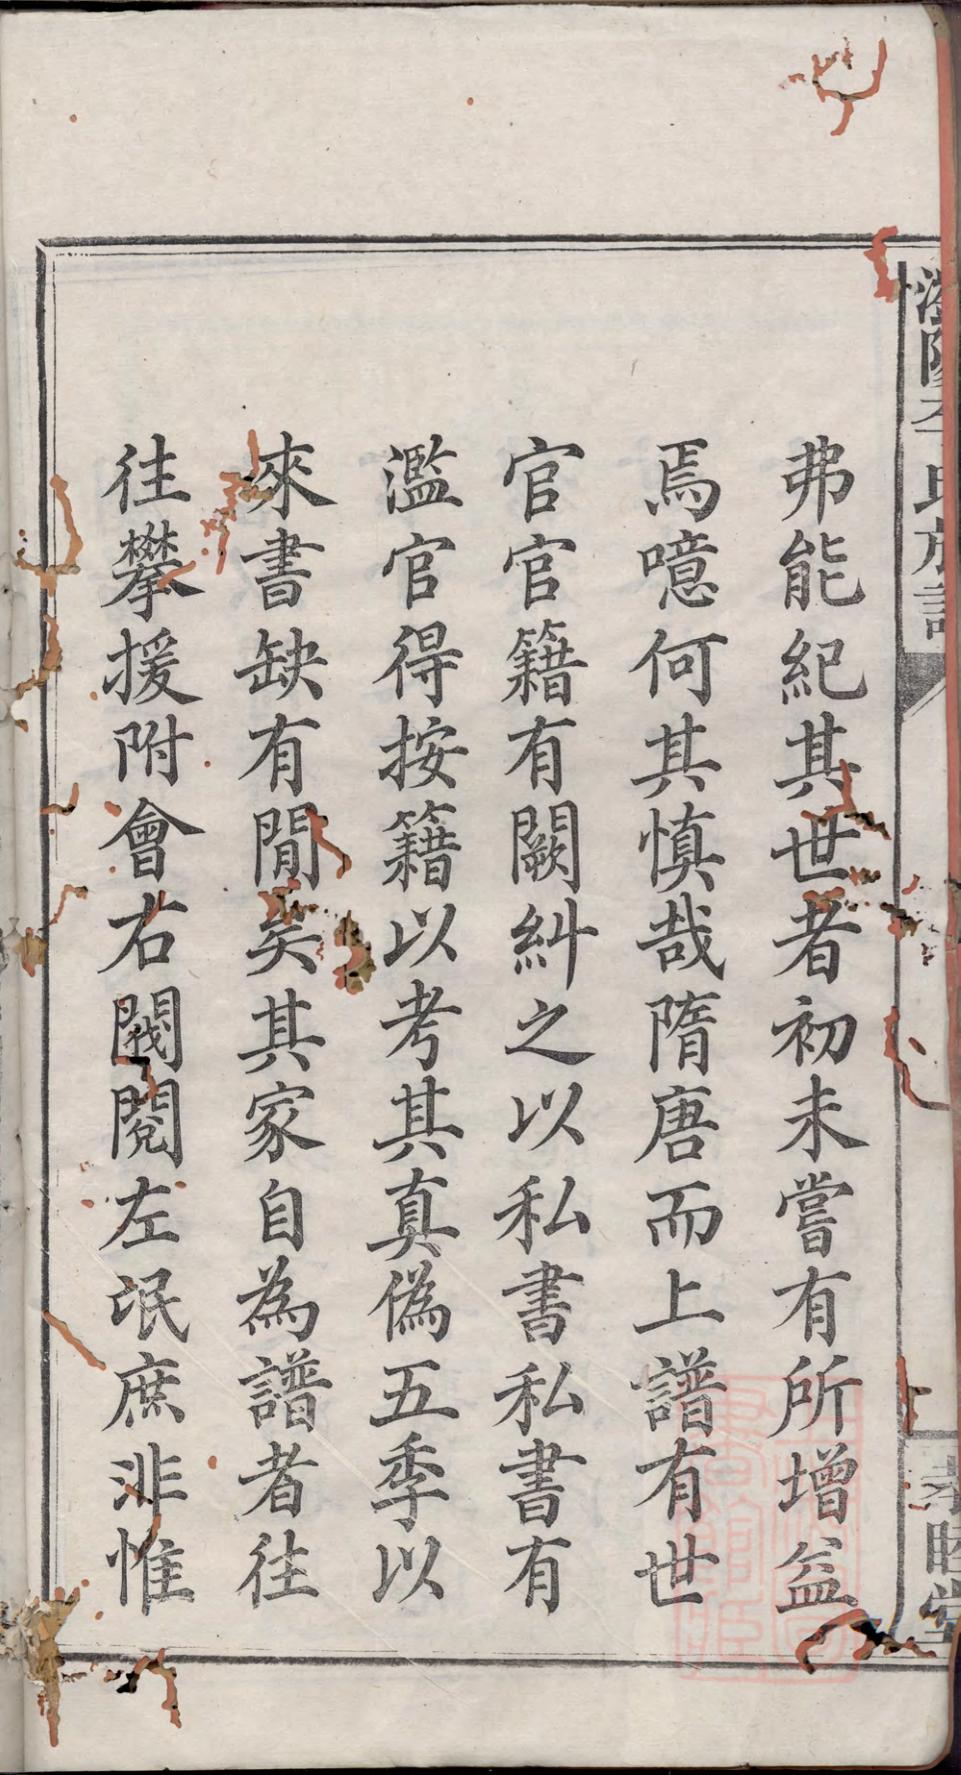 李氏族譜
睦堂
弗能紀其世者初未嘗有所增益
焉噫何其慎哉隋唐而上譜有世
官官籍有闕糾之以私書私書有
濫官得按籍以考其真偽五季以
來書缺有閒矣其家自為譜者往
往攀援附會右閥閱左氓庶非惟